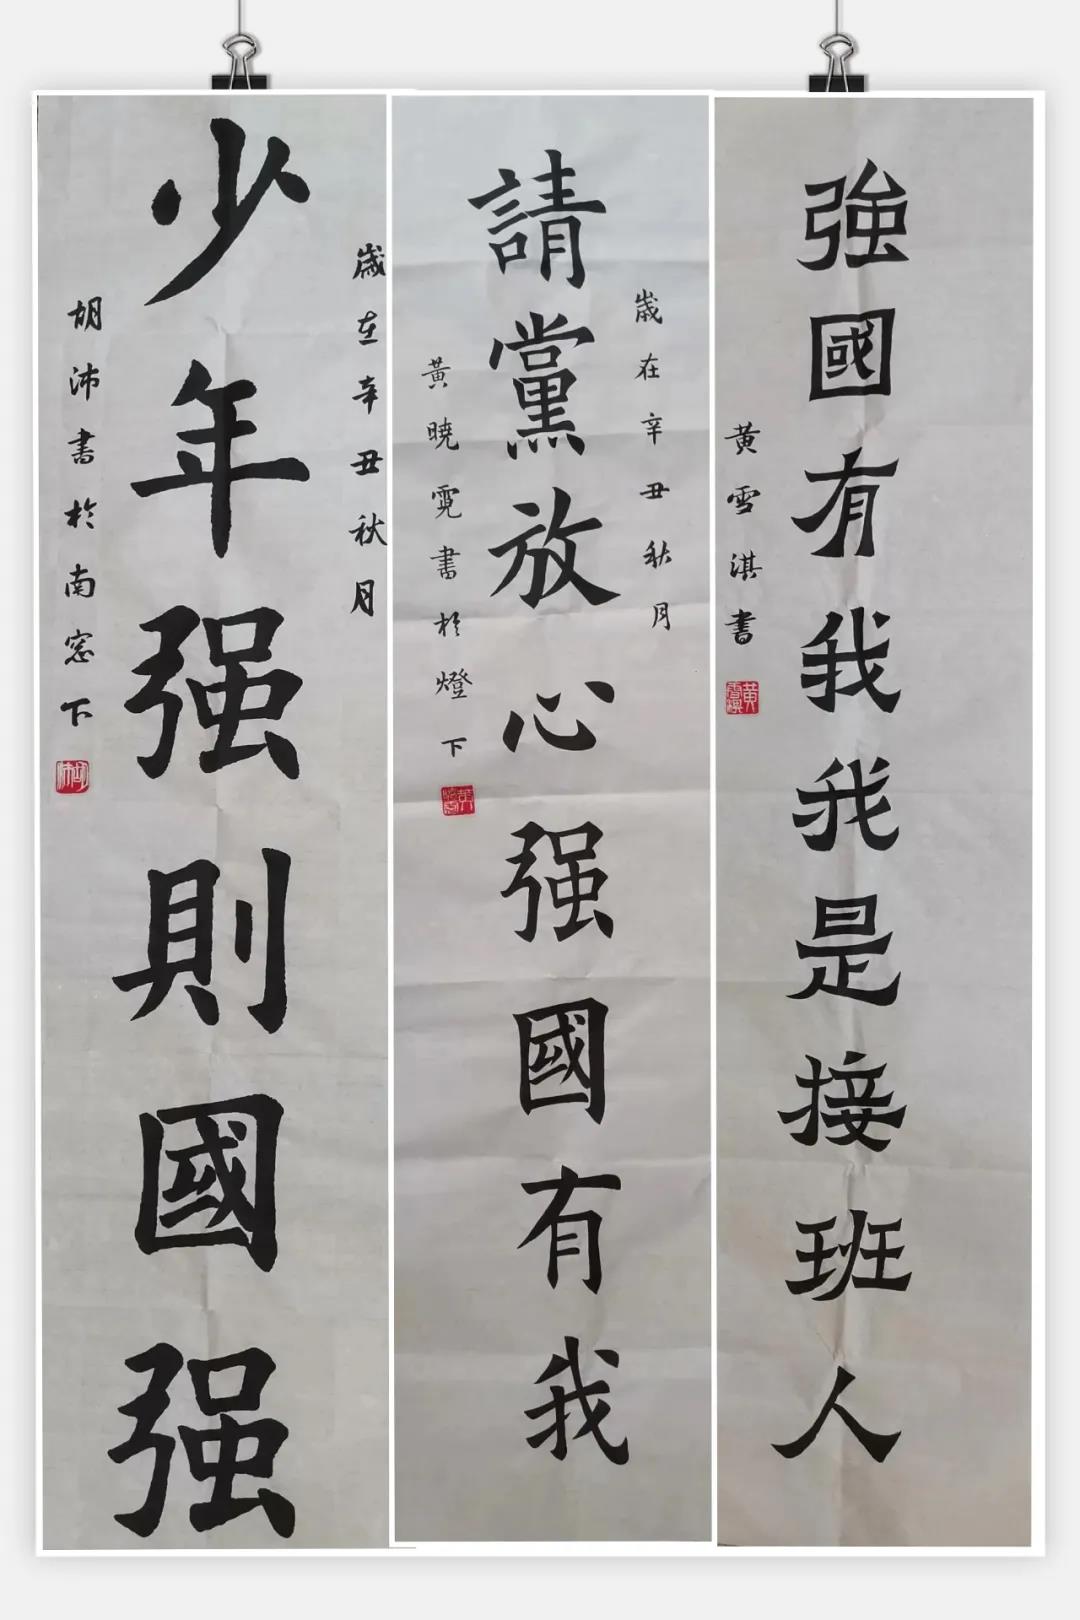 歲在辛丑秋月
少年强則國强
胡沛書於南窓下
歲在辛丑秋月
請黨放心强國有我
黃曉霓書於燈下
強國有我我是接班人
黄雪淇書